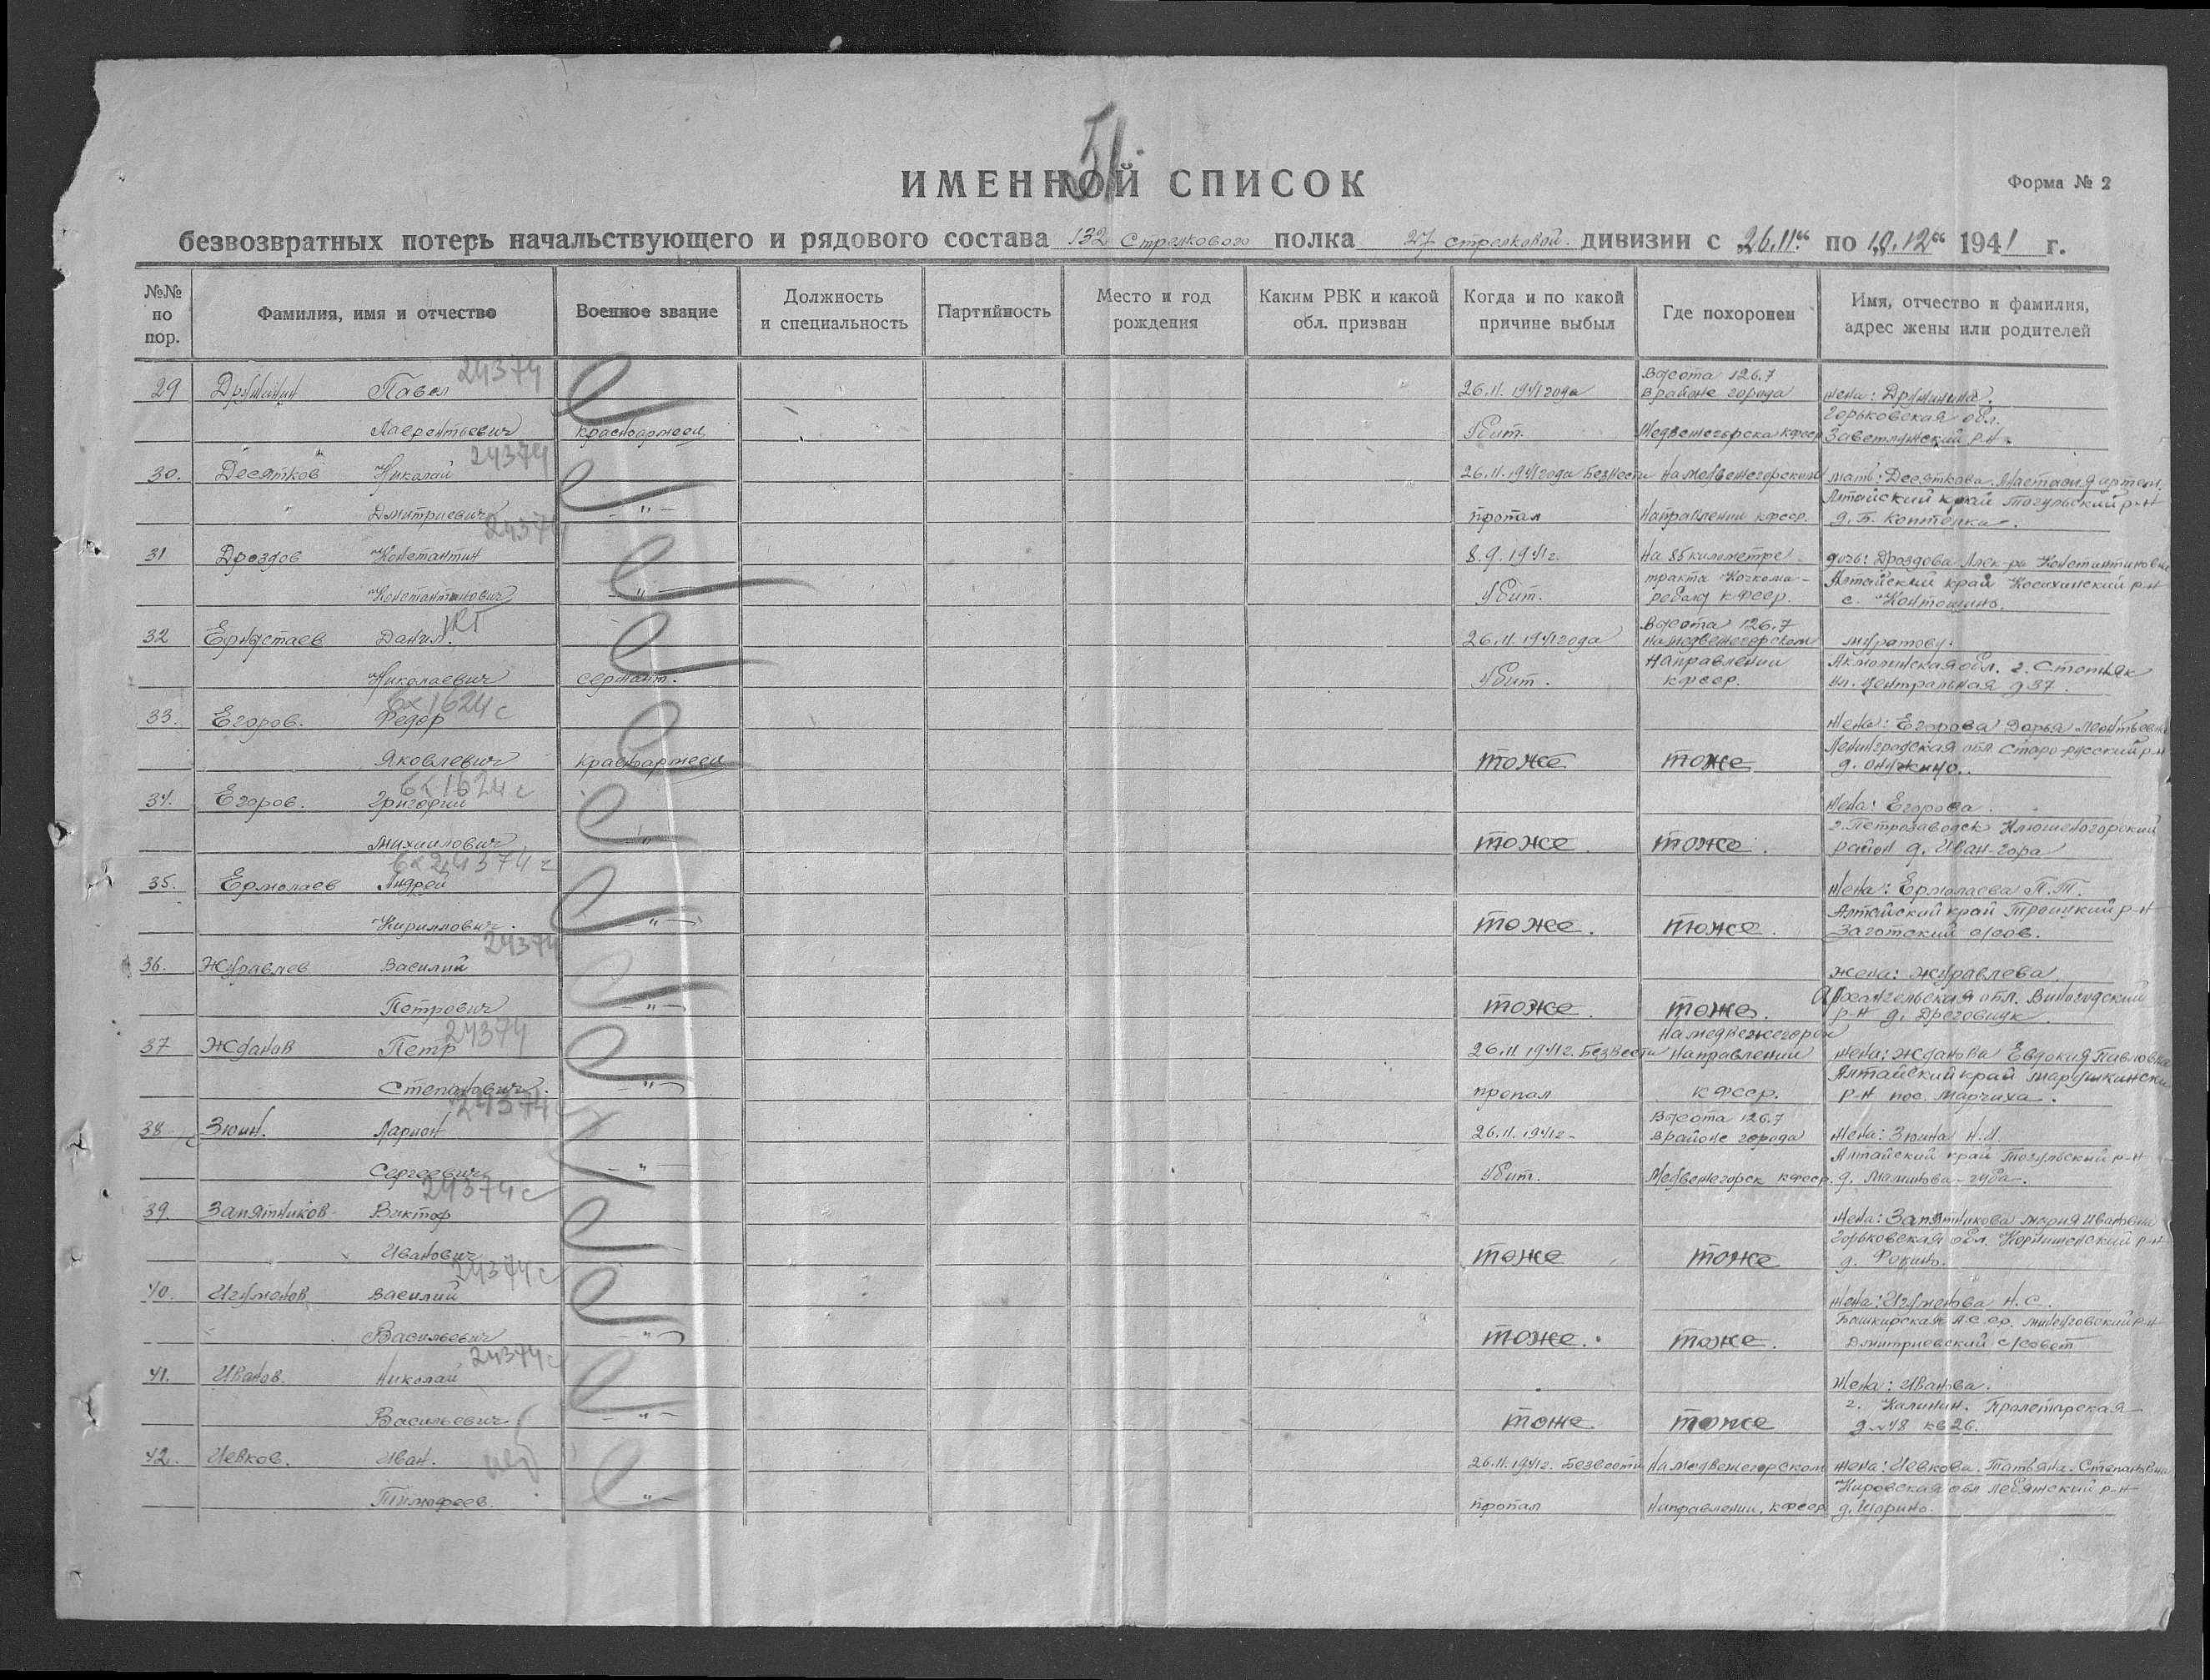 51.
ИМЕННОЙ СПИСОК
Форма № 2
безвозвратных потерь начальствующего и рядового состава 132 Стрелкового полка 27 стрелковой. дивизии с 26.11." по 10.12" 1941 г.
№№ по пор.
Фамилия, имя и отчество
Военное звание
Должность и специальность
Партийность
Место и год рождения
Каким РВК и какой обл. призван
Когда и по какой причине выбыл
Где похоронен
Имя, отчество и фамилия, адрес жены или родителей
24374
29 Дружинин Павел 26.11.1941 года Высота 126.7 в районе города жена: Дружинина.
Лаврентьевич красноармеец Убит. Медвежегорска кфсср Горьковская обл. Заветлужский р-н
24374
30. Десятков Николай 26.11.1941 года Безвести На Медвежегорском мать: Десяткова Настасия Артем.
Дмитриевич -"- пропал Направлении кфсср. Алтайский край Тогульский р-н д. Б. Коптелка.
24374
31 Дроздов Константин 8.9.1941г. На 85 километре дочь: Дроздова Алек-ра Константиновна
Константинович -"- Убит. тракта Кочкома-реболы кфсср. Алтайский край Косихинский р-н с. Контошино.
32 Ернустаев Данил. 26.11.1941 года Высота 126.7 на медвежегорском муратову.
Николаевич сержант. Убит. Направлении кфсср. Акмолинская обл. г. Степняк ул. Центральная д 37.
6х1624с
33. Егоров. Федор Жена: Егорова Дарья Леонтьевна
Яковлевич красноармеец тоже тоже Ленинградская обл. Старо-русский р-н
6х1624с
34. Егоров. Григорий Жена: Егорова.
Михаилович -"- тоже. тоже. г. Петрозаводск район д. Иван-гора
6х24374с
35. Ермолаев Андрей Жена: Ермолаева П.Т.
Кириллович. -"- тоже. тоже. Алтайский край Троицкий р-н Заготский с/сов.
24374
36. Журавлев Василий жена: Журавлева
Петрович -"- тоже. тоже. Архангельская обл. Виногодский р-н д.
24374
37 Жданов Петр 26.11.1941г. Безвести На медвежегорск Направлении жена: Жданова Евдокия Павловна
Степанович. -"- пропал кфсср. Алтайский край марушкински р-н пос. Марчиха.
24374с
38 Зюин. Ларион 26.11.1941г- Высота 126.7 в районе города Жена: Зюина Н.И.
Сергеевич -"- Убит. Медвежегорск кфсср. Алтайский край Тогульский р-н д.
24374с
39. Запятников Виктор Жена: Запятникова мария Ивановна
Иванович -"- тоже тоже Горьковская обл. р-н д. Фокино.
24374с
40. Игуменов Василий Жена: Игуменова Н.С.
Васильевич -"- тоже. тоже. Башкирская А.С.ср. р-н Дмитриевский с/совет
24374с
41. Иванов. Николай Жена: Иванова.
Васильевич -"- тоже тоже г. Калинин. Пролетарская д. 48 кв 26.
42. Иевков. Иван. 26.11.1941г. Безвести На Медвежегорском жена: Иевкова. Татьяна. Степановна
Тимофеев. -"- пропал Направлении. кфсср Кировская обл Лебяжский р-н д. Шорино.